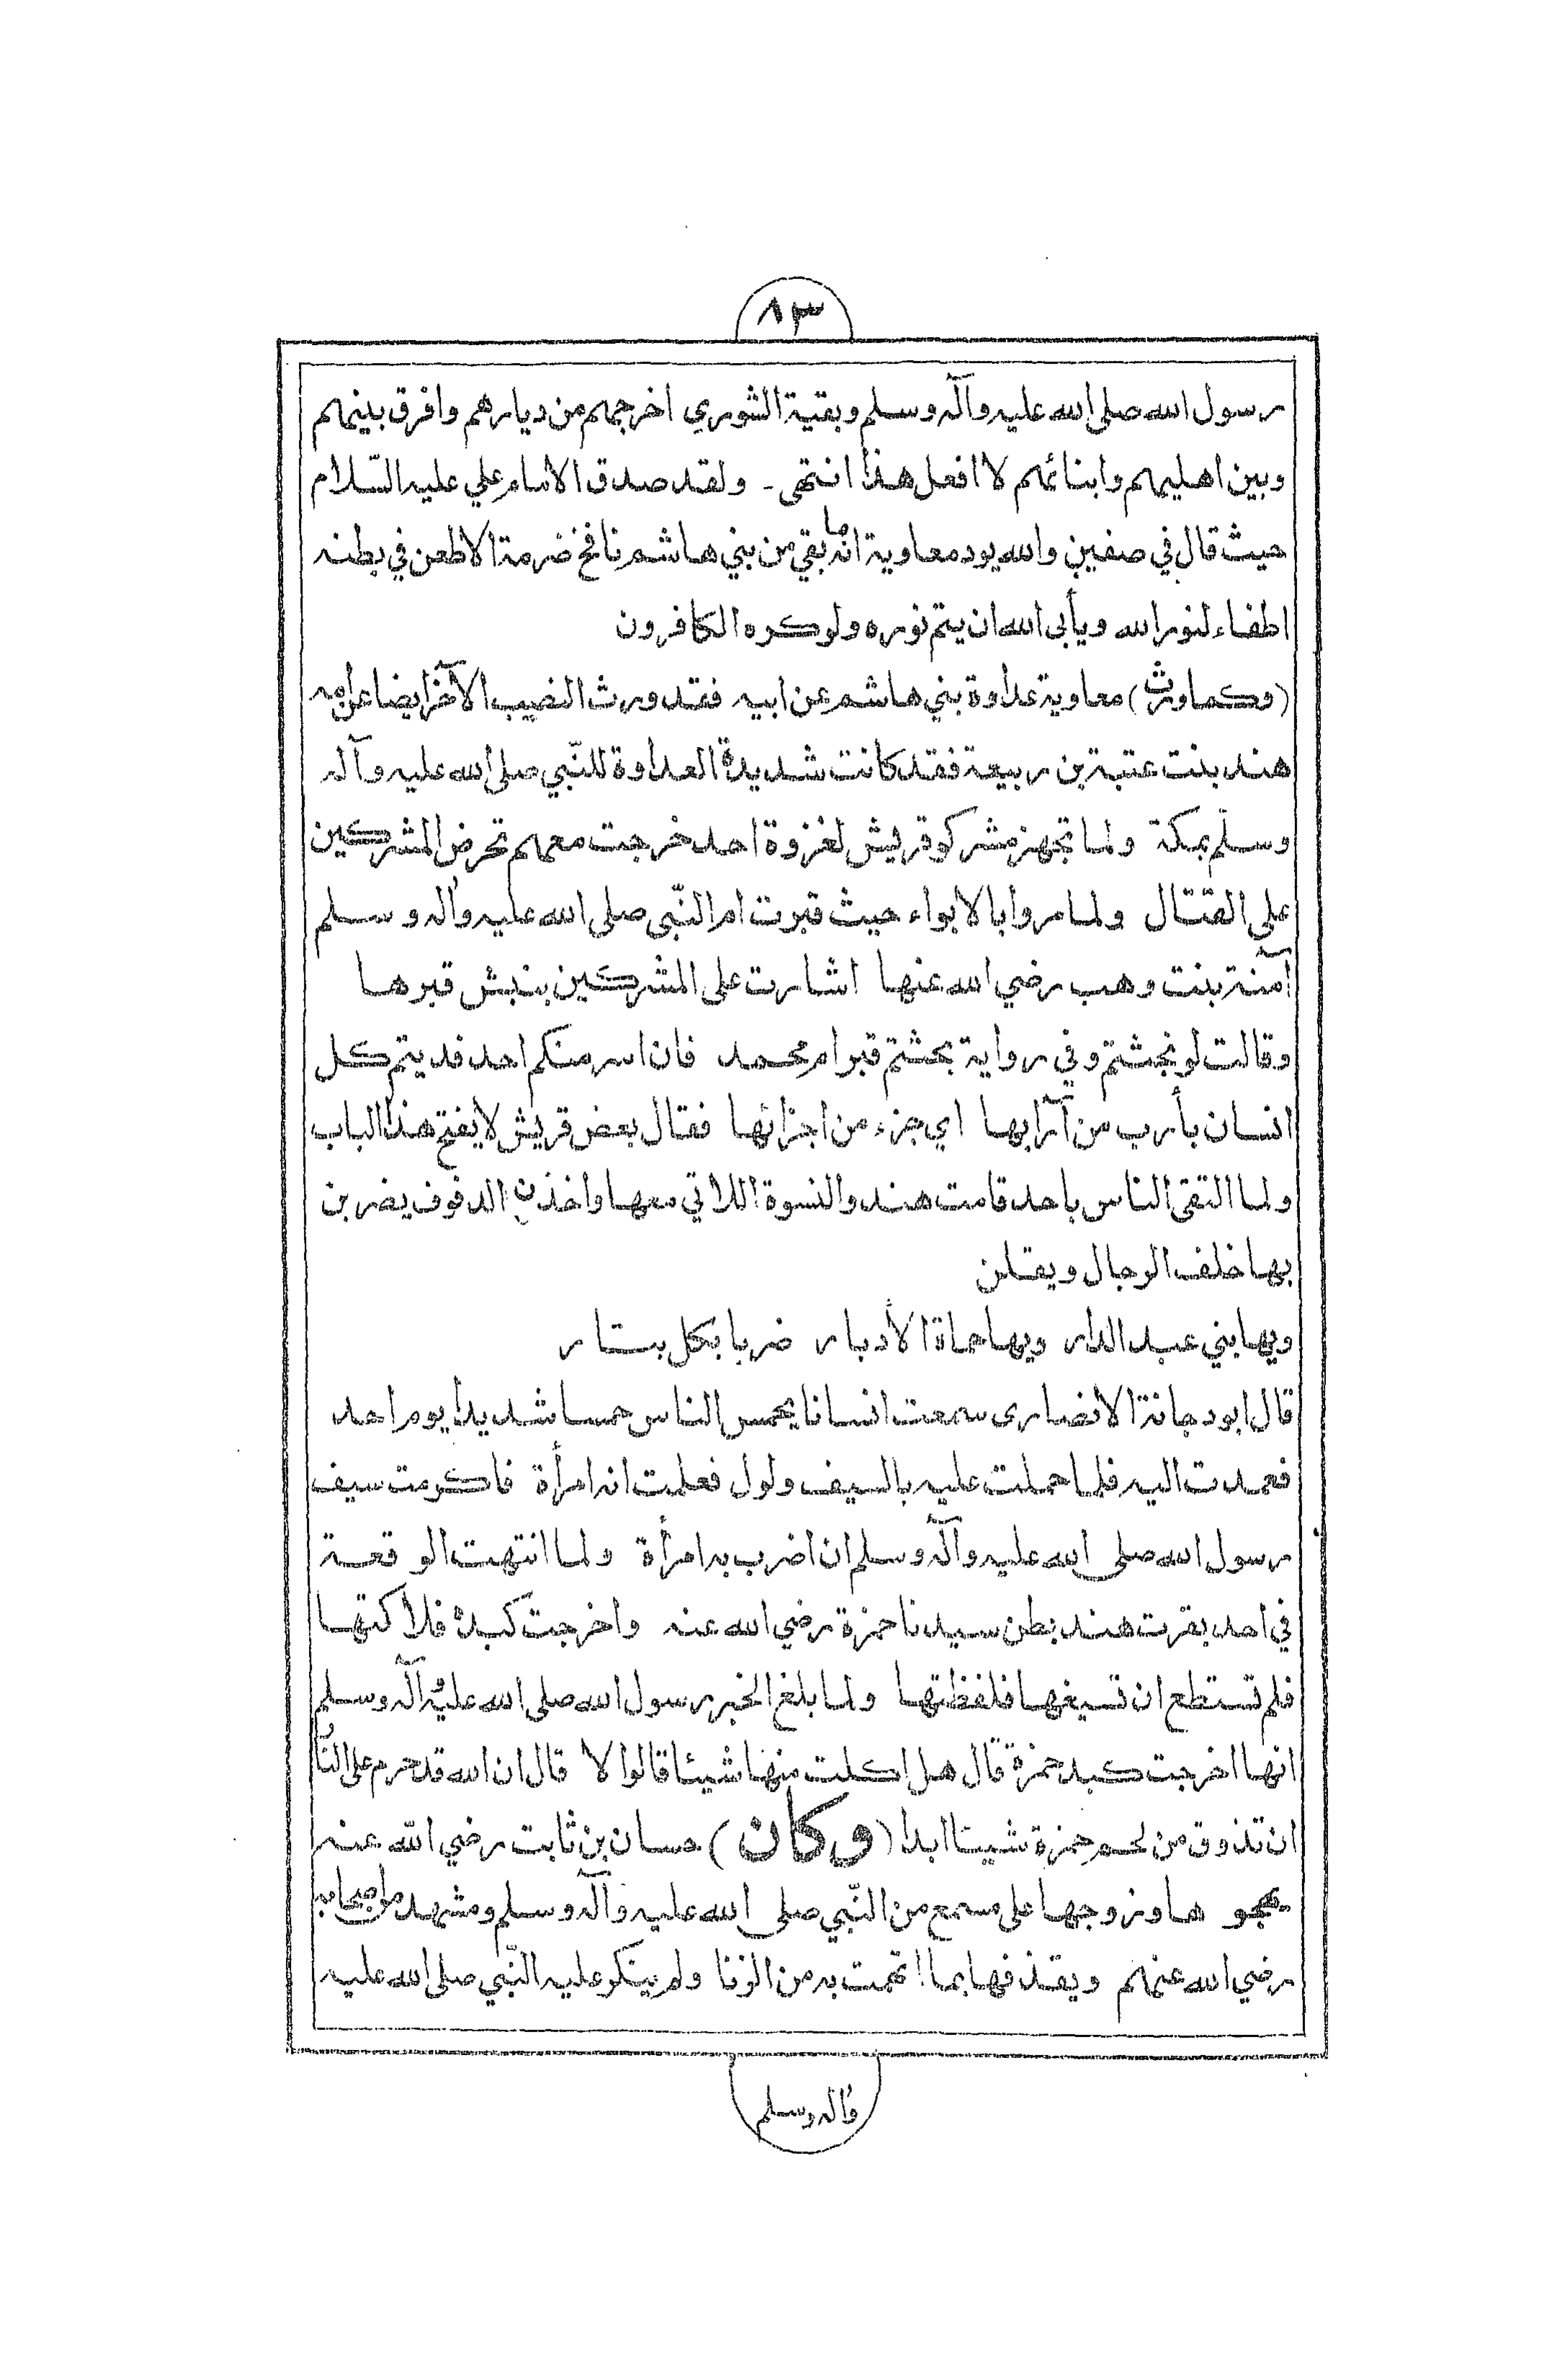 ٨٣
رسول الله صلى الله عليه وآله وسلم وبقية الشوري اخرجهم من ديارهم وافرق بينهم
وبين اهليهم وابنائهم لا افعل هذا انتهى - ولقد صدق الامام علي عليه السّلام
حيث قال في صفين والله يود معاوية انه ما بقي من بني هاشم نافخ ضرمة الا طعن في بطنه
اطفاء لنور الله ويأبى الله ان يتم نوره ولو كره الكافرون
(وكما ورث) معاوية عداوة بني هاشم عن ابيه فقد ورث النصيب الآخر ايضا عن امه
هند بنت عتبة بن ربيعة فقد كانت شديدة العداوة للنّبي صلى الله عليه وآله
وسلّم بمكة ولما تجهز مشركو قريش لغزوة احد خرجت معهم تحرض المشركين
على القتال ولما مروا بالابواء حيث قبرت ام النّبي صلى الله عليه وآله وسلم
آمنة بنت وهب رضي الله عنها اشارت على المشركين بنبش قبرها
وقالت لو نجثتم وفي رواية بحثتم قبر ام محمد فان اسر منكم احد فديتم كل
انسان بأرب من آرابها اي جزء من اجزائها فقال بعض قريش لا يفتح هذا الباب
ولما التقى الناس باحد قامت هند والنسوة اللاتي معها واخذن الدفوف يضربن
بها خلف الرجال ويقلن
ويها بني عبد الدار ويها حماة الأدبار ضربا بكل بتار
قال ابو دجانة الانصارى سمعت انسانا يحمس الناس حمسا شديدا يوم احد
فعمدت اليه فلما حملت عليه بالسيف ولول فعلمت انه امرأة فاكرمت سيف
رسول الله صلى الله عليه وآله وسلم ان اضرب به امرأة ولما انتهت الوقعة
في احد بقرت هند بطن سيدنا حمزة رضي الله عنه واخرجت كبده فلاكتها
فلم تستطع ان تسيغها فلفظتها ولما بلغ الخبر رسول الله صلى الله عليه وآله وسلم
انها اخرجت كبد حمزة قال هل اكلت منها شيئا قالوا لا قال ان الله قد حرم على النار
ان تذوق من لحم حمزة شيئا ابدا (وكان) حسان بن ثابت رضي الله عنه
يهجو ها وزوجها على مسمع من النّبي صلى الله عليه وآله وسلم ومشهد من اصحابه
رضي الله عنهم ويقذفها بما اتهمت به من الزنا ولم ينكر عليه النّبي صلى الله عليه
وآله وسلم